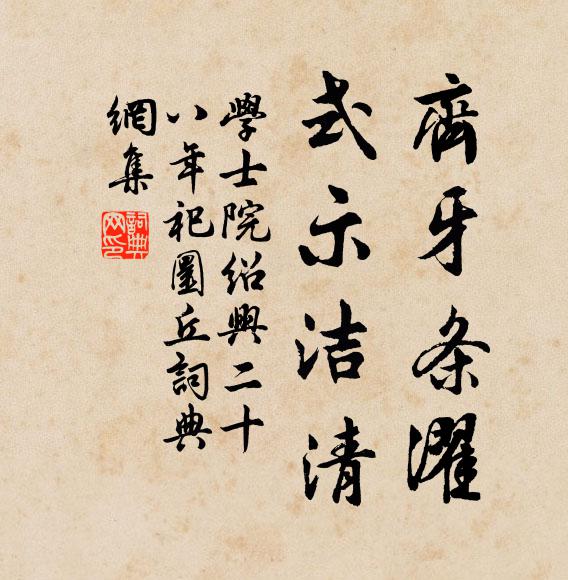 齊牙条濯
式示洁清
學士院紹興二十
八年祀圜丘詞典
網集
詞典
网印